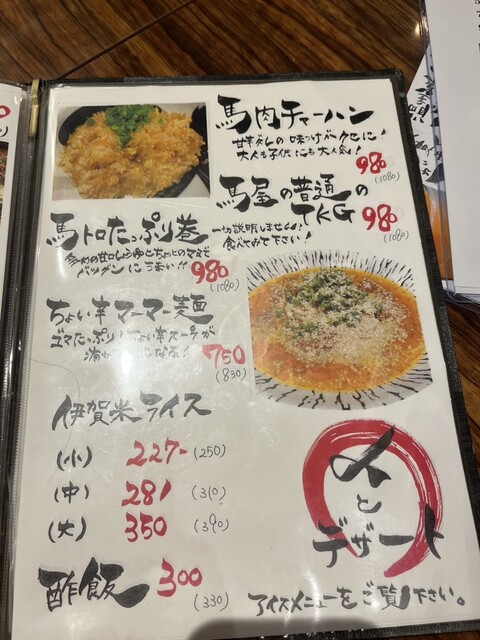 馬肉チャーハン
甘辛ダレの味つけがクセに!
大人も子供にも大人気!
980
(1080)
馬屋の普通の
TKG
980
(1080)
一切説明しません!
食べてみて下さい!
馬トロたっぷり巻
多めの甘口しょうゆとちょっとのワサビで
バツグンにうまい!!
980
(1080)
ちょい辛マーマー麺
ゴマたっぷり ちょい辛スープが
750
(830)
伊賀米ライス
(小) 227- (250)
(中) 281 (310)
(大) 350 (390)
酢飯 300
(330)
〆と
デザート
アイスメニューをご覧下さい。